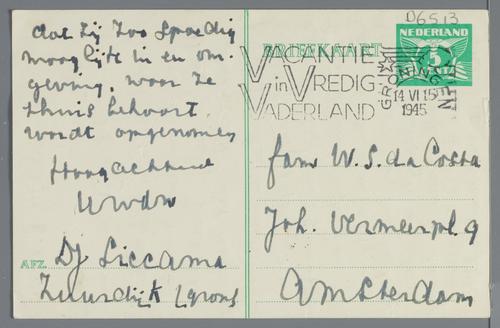 dat zij zoo spoedig
mooglijk in en om-
geving, waar ze
thuis behoort
wordt opgenomen
Hoogachtend
Uwdw
AFZ. Dj Siccama
Zuurdijk (Gron)
D6513
BRIEFKAART
NEDERLAND
5
VACANTIE
in VREDIG
VADERLAND
GRONINGEN
14 VI 15
1945
fam W. S. da Costa
Joh. Vermeerpl. 9
Amsterdam